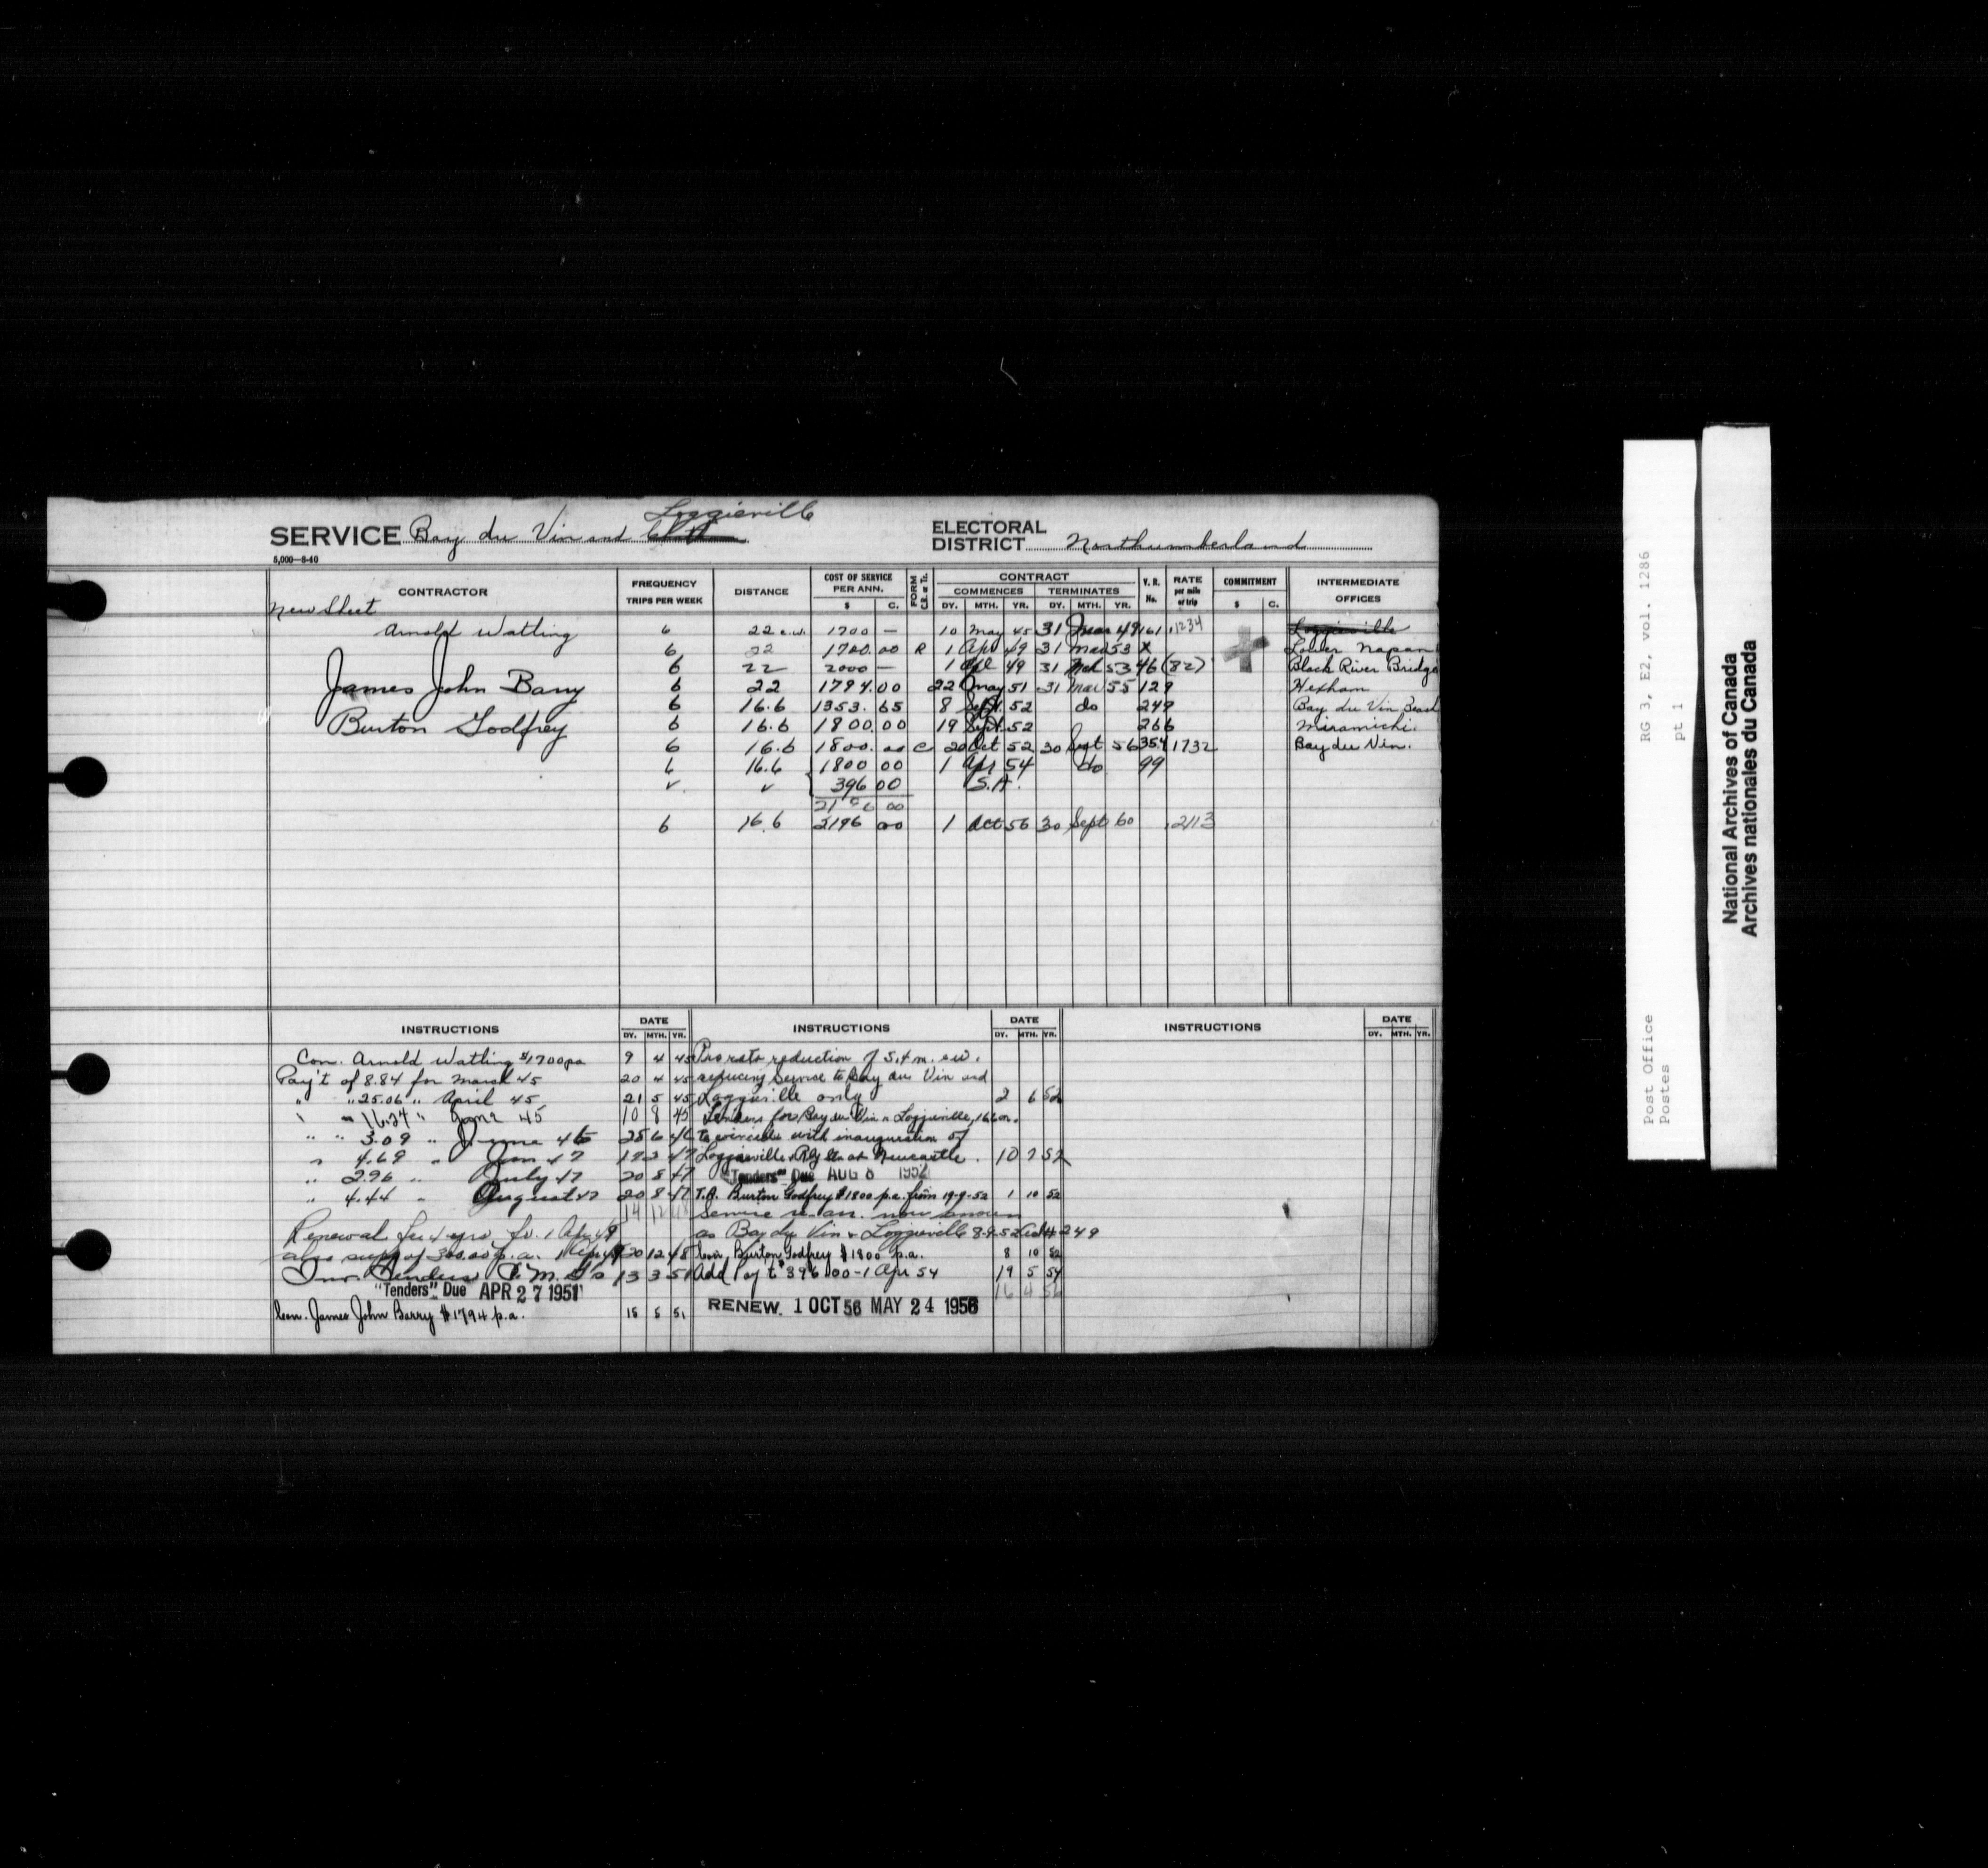 Loggieville
SERVICE Bay du Vin and
ELECTORAL DISTRICT Northumberland
5,000-8-40
CONTRACTOR FREQUENCY TRIPS PER WEEK DISTANCE COST OF SERVICE PER ANN. $ C. FORM C.R. or Ts. CONTRACT COMMENCES DY. MTH. YR. TERMINATES DY. MTH. YR. V.R. No. RATE per mile or trip COMMITMENT $ C. INTERMEDIATE OFFICES
New Sheet
Arnold Watling 6 22 e.w. 1700 — 10 May 45 31 Mar 49 161 .1234 Loggieville
6 22 1700.00 R 1 Apr 49 31 Mar 53 X Lower Napan
6 22 2000 — 1 Apl 49 31 Mch 53 46 (82) Black River Bridge
James John Barry 6 22 1794.00 22 May 51 31 Mar 55 129 Hexham
6 16.6 1353.65 8 Sept. 52 do 249 Bay du Vin Beach
Burton Godfrey 6 16.6 1800.00 19 Sept. 52 266 Miramichi.
6 16.6 1800.00 C 20 Oct 52 30 Sept 56 354 1732 Bay du Vin.
6 16.6 1800 00 1 Apr 54 do 99
✓ ✓ 396 00 S.A.
2196 00
6 16.6 2196 00 1 Oct 56 30 Sept 60 .2113
INSTRUCTIONS DATE DY. MTH. YR. INSTRUCTIONS DATE DY. MTH. YR. INSTRUCTIONS DATE DY. MTH. YR.
Con. Arnold Watling $1700 pa 9 4 45
Pay't of 8.84 for March 45 20 4 45
" " 25.06 " April 45 21 5 45
" " 16.24 " June 45 10 9 45
" " 3.09 " June 46 25 6 46
" 4.69 " Jan 47 17 2 47
" 2.96 " July 47 20 8 47
" 4.44 " August 47 20 8 47
14 12 48
Renewal for 4 yrs fr. 1 Apr 49
also supp of 300.00 p.a. 1 Apr 49 20 12 48
Inv. Tenders 13 3 51
"Tenders" Due APR 27 1951
Con. James John Barry $1794 p.a. 15 5 51
Pro rata reduction of 5.4 m. e.w.
reducing service to Bay du Vin and
Loggieville only 2 6 52
Tenders for Bay du Vin & Loggieville, 16.6 m.
to coincide with inauguration of
Loggieville & Rly Stn at Newcastle. 10 7 52
"Tenders" Due AUG 8 1952
T.A. Burton Godfrey $1800 p.a. from 19-9-52 1 10 52
Service re-arr. now known
as Bay du Vin & Loggieville 8-9-52 249
Con. Burton Godfrey $1800 p.a. 8 10 52
Add Pay't $396.00 - 1 Apr 54 19 5 54
16 4 56
RENEW. 1 OCT 56 MAY 24 1956
RG 3, E2, vol. 1286
pt 1
Post Office
Postes
National Archives of Canada
Archives nationales du Canada